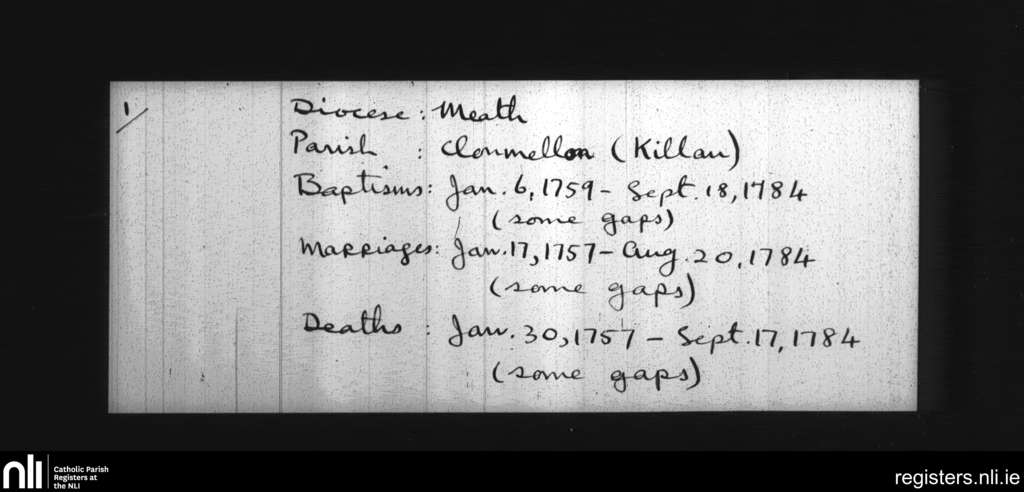 1/
Diocese : Meath
Parish : Clonmellon (Killau)
Baptisms: Jan. 6, 1759 - Sept. 18, 1784
(some gaps)
Marriages: Jan. 17, 1757 - Aug. 20, 1784
(some gaps)
Deaths : Jan. 30, 1757 - Sept. 17, 1784
(some gaps)
nli
Catholic Parish
Registers at
the NLI
registers.nli.ie